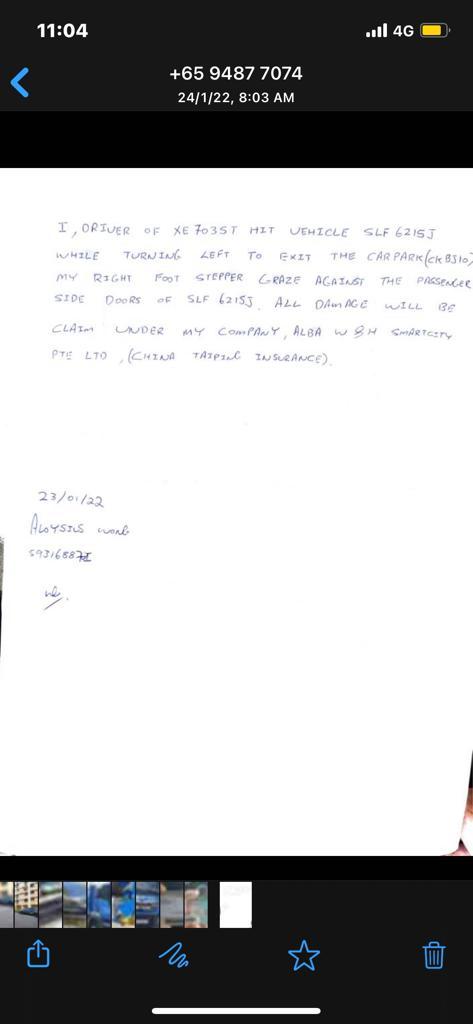 11:04
4G
+65 9487 7074
24/1/22, 8:03 AM
I, DRIVER OF XE7035T HIT VEHICLE SLF6215J
WHILE TURNING LEFT TO EXIT THE CARPARK(CKB310)
MY RIGHT FOOT STEPPER GRAZE AGAINST THE PASSENGER
SIDE DOORS OF SLF6215J. ALL DAMAGE WILL BE
CLAIM UNDER MY COMPANY, ALBA W&H SMARTCITY
PTE LTD, (CHINA TAIPING INSURANCE).
23/01/22
ALOYSIUS WONG